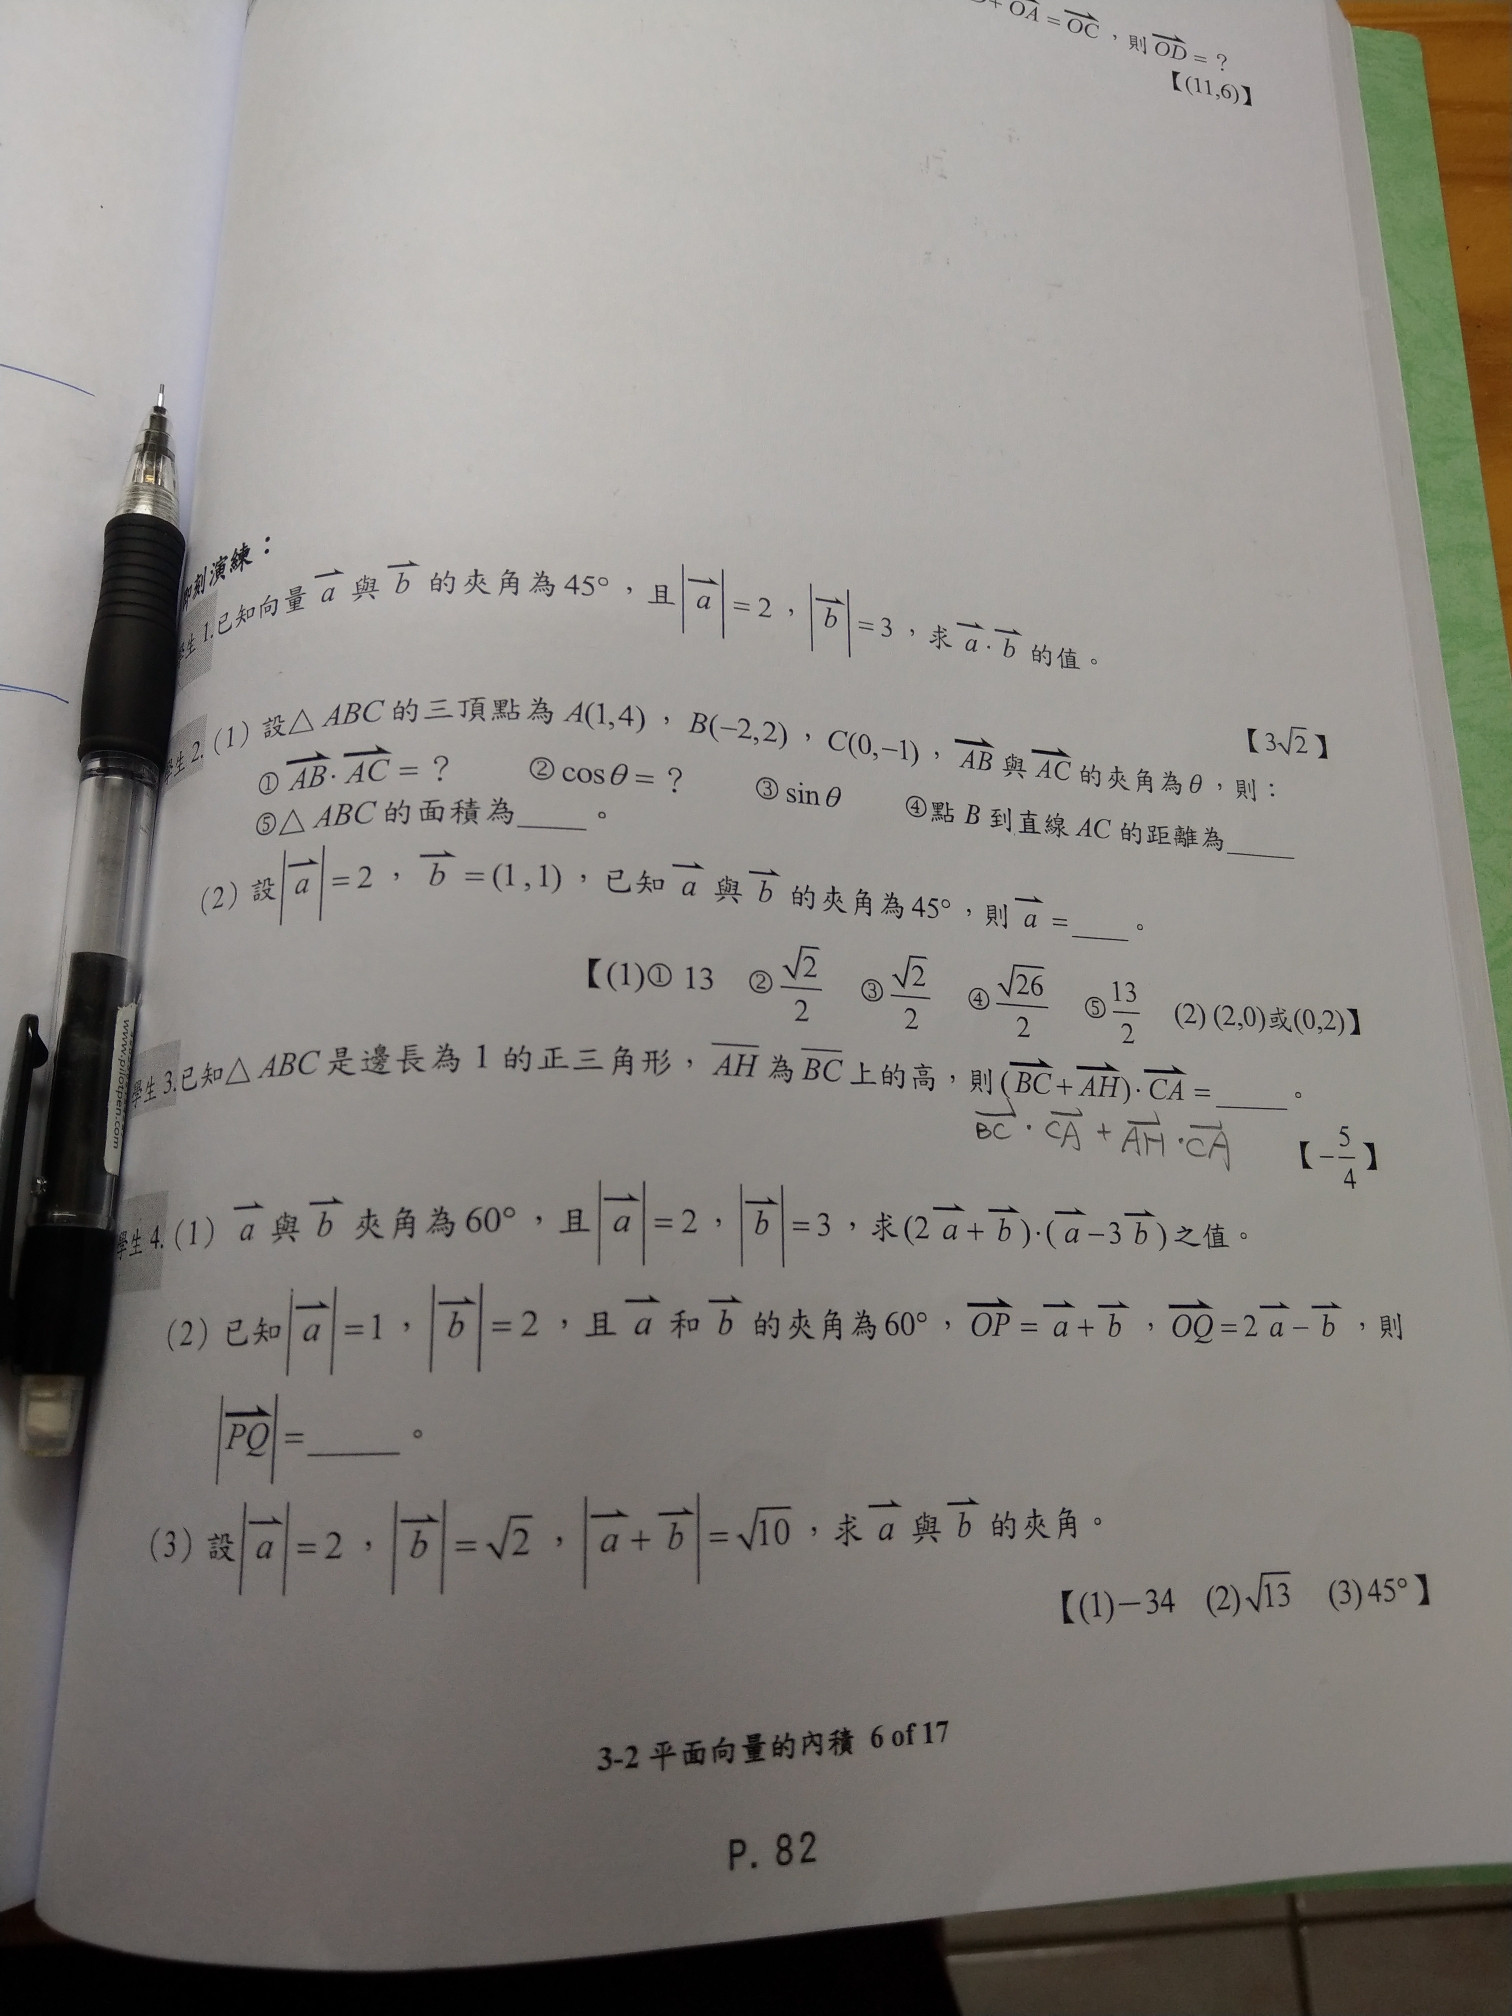 + OA = OC,則 OD = ?
【(11,6)】
即刻演練:
學生1.已知向量 a 與 b 的夾角為45°,且|a|=2,|b|=3,求 a·b 的值。
【3√2】
學生2.(1) 設△ABC的三頂點為A(1,4),B(−2,2),C(0,−1),AB與AC的夾角為θ,則:
① AB·AC = ? ② cosθ = ? ③ sinθ ④點B到直線AC的距離為____
⑤△ABC的面積為____。
(2) 設|a|=2,b=(1,1),已知 a 與 b 的夾角為45°,則 a =____。
【(1)① 13 ② √2/2 ③ √2/2 ④ √26/2 ⑤ 13/2 (2) (2,0)或(0,2)】
學生3.已知△ABC是邊長為1的正三角形,AH為BC上的高,則(BC+AH)·CA=____。
BC·CA + AH·CA
【−5/4】
學生4.(1) a 與 b 夾角為60°,且|a|=2,|b|=3,求(2a+b)·(a−3b)之值。
(2) 已知|a|=1,|b|=2,且 a 和 b 的夾角為60°,OP=a+b,OQ=2a−b,則
|PQ|=____。
(3) 設|a|=2,|b|=√2,|a+b|=√10,求 a 與 b 的夾角。
【(1)−34 (2)√13 (3)45°】
3-2 平面向量的內積 6 of 17
P. 82
www.pilotpen.com